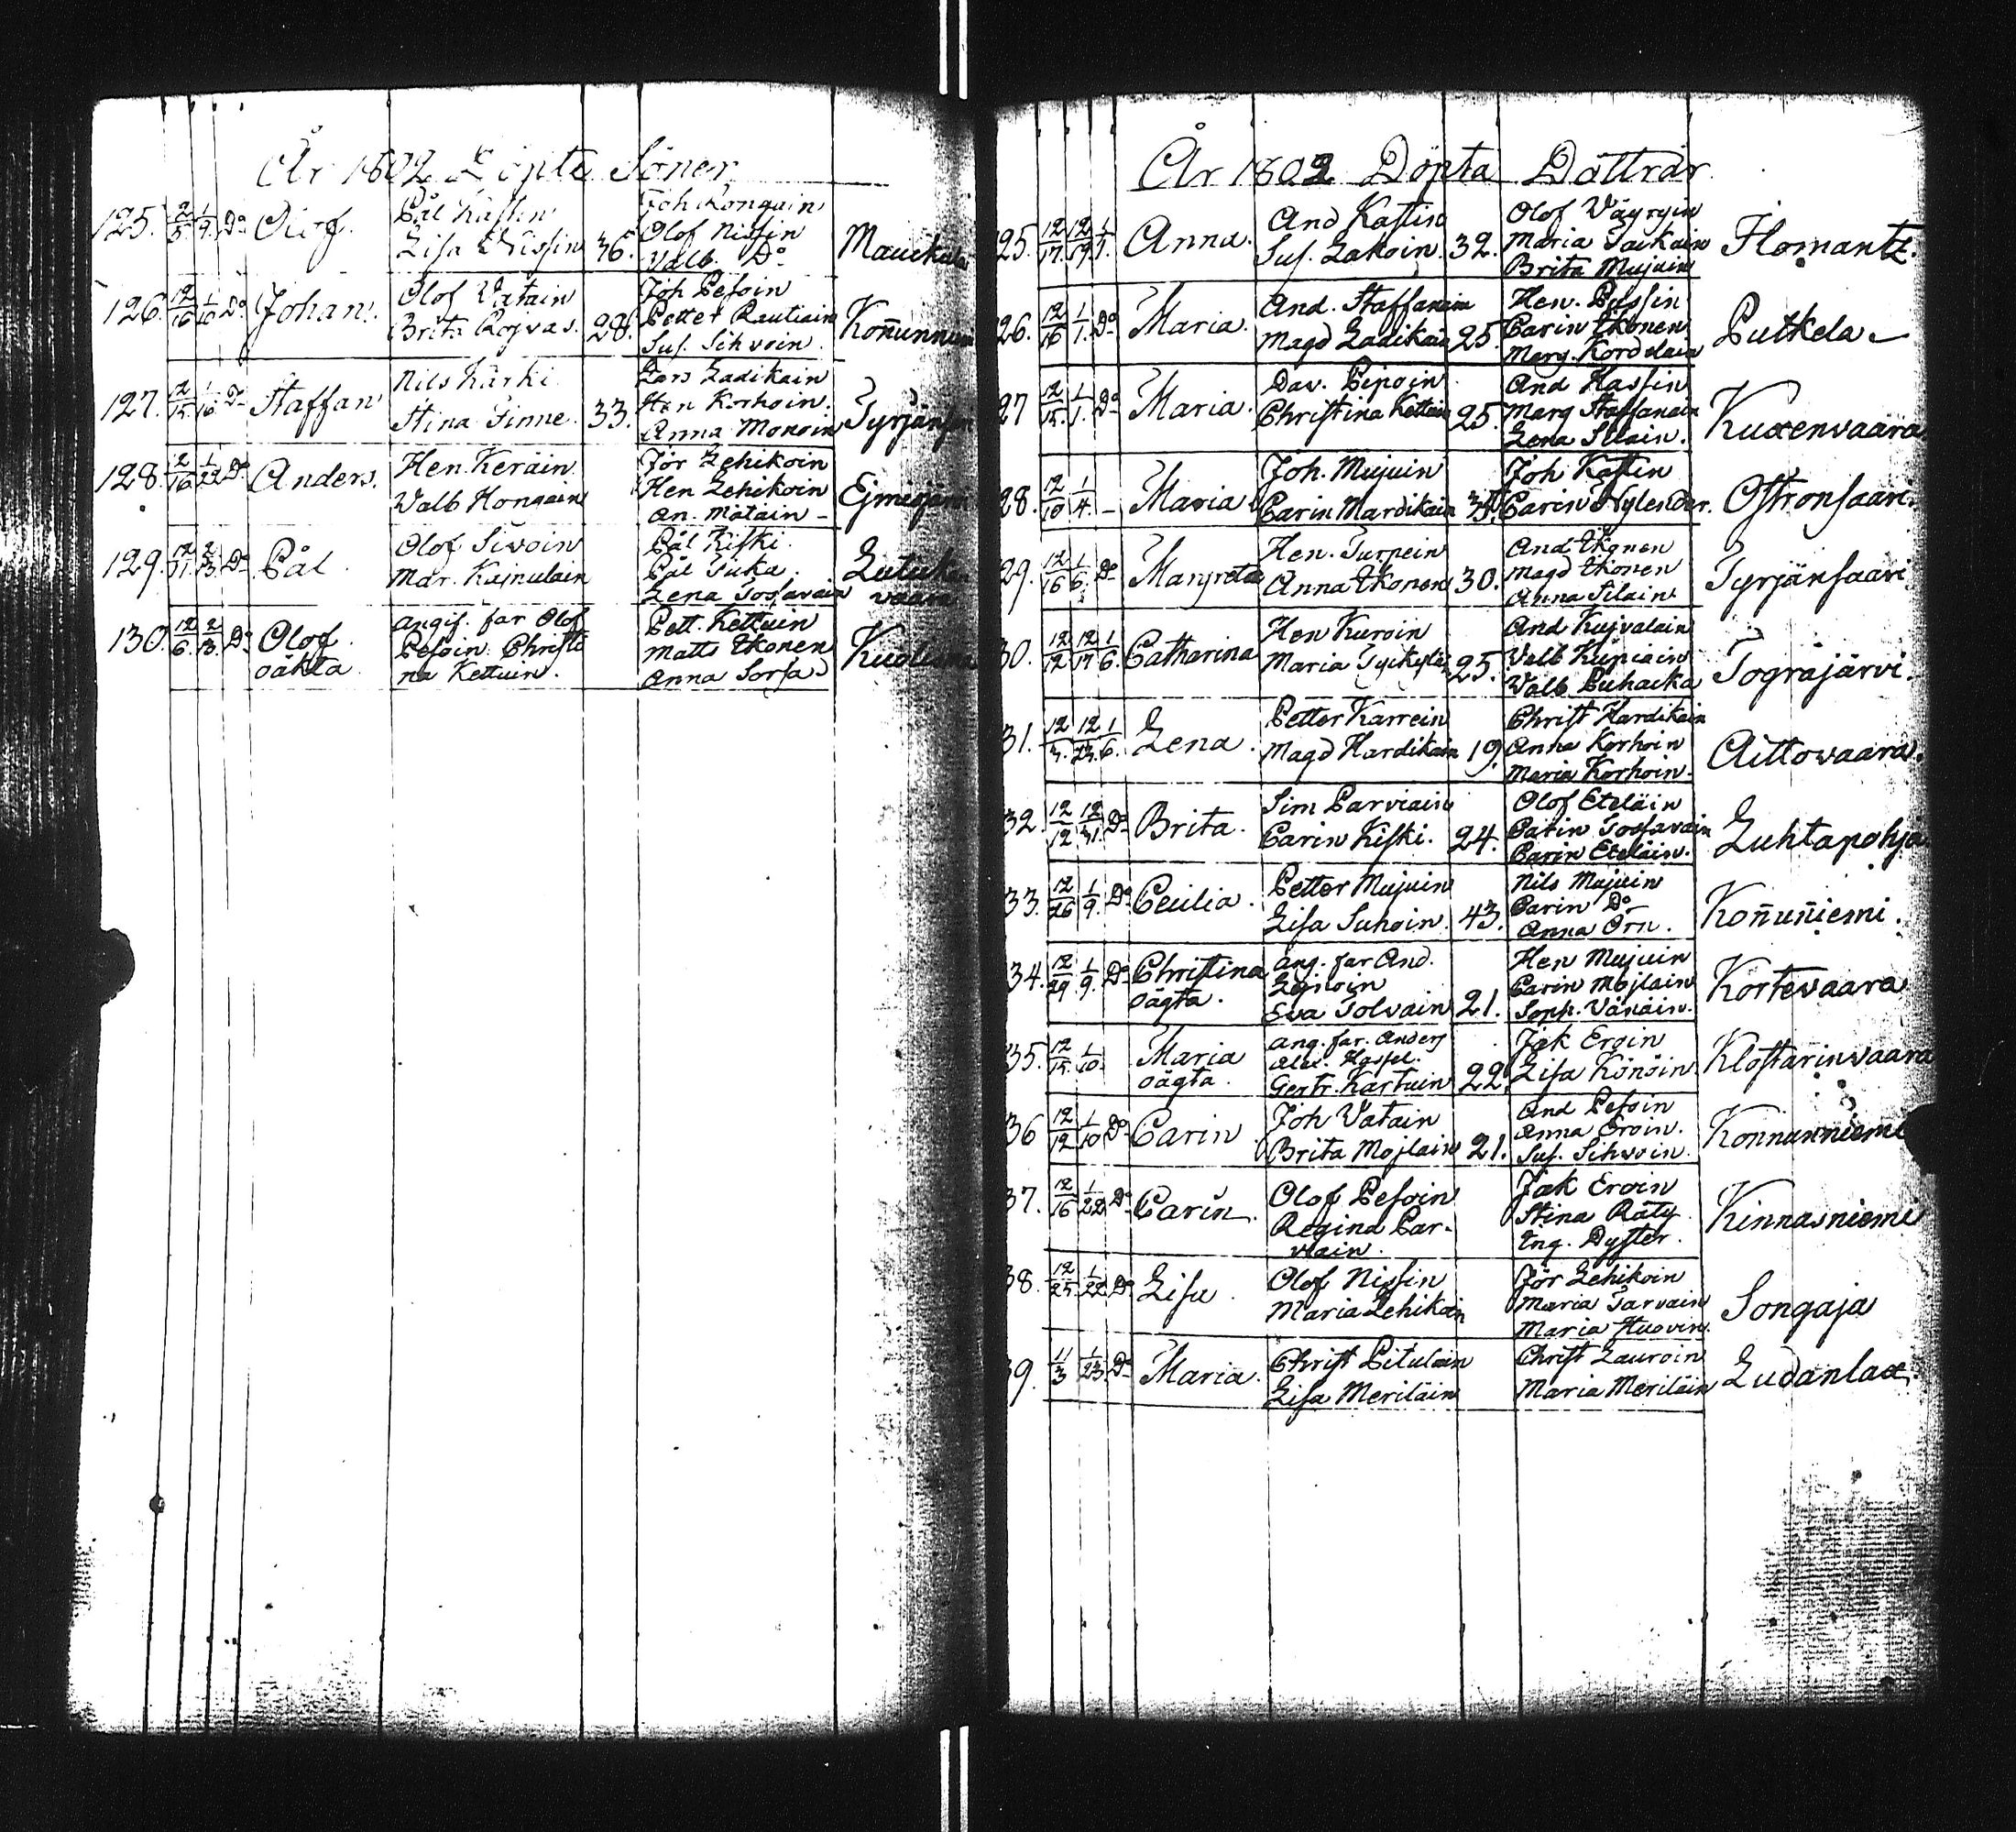 År 1802 Döpte Söner
125. 2/5 1/9. Do Olof. Pål Kastin
Lisa Nissin 36.
Joh Konguin
Olof Nissin
Valb. Do
126. 12/16 1/10 Do Johan. Olof Vatain
Brita Rojvas. 28.
Joh Pesoin
Petter Rautiain
Sus. Sihvoin.
127. 1/16 Staffan Nils Kärki
Stina Sinne. 33.
Lars Ladikain
Hen Korhoin.
Anna Monoin
128. 1/22 Do Anders. Hen. Keräin
Valb Hongain
Jör Lehikoin
Hen Lehikoin
An. Matain -
129. 12/11. 2/3 Do Pål. Olof Sivoin
Mar. Kainulain
Pål Kiski.
Pål Suka.
Lena Tossavain
130. 12/6. 2/13. Do Olof
oäkta
angif. far Olof
Pesoin. Christi
na Kettuin.
Pett. Kettuin
Matts Ikonen
Anna Sorsa
År 1802 Döpta Döttrar
25. 12/17. 12/19. 1/1. Anna. And Kastin
Sus. Lakoin. 32.
Olof Väyryin
Maria Saikain
Brita Mujuin
Ilomantz.
26. 12/16 1/1. Do Maria. And. Staffanain
Magd Ladikain 25.
Hen. Pussin
Carin Ikonen
Marg. Kordelain
Putkela
27 12/15. 1/1. Do Maria. Dav. Piipoin
Christina Kettuin 25.
And Hassin
Marg Staffanain
Lena Silain.
Kuxenvaara
28. 12/10 1/4. - Maria Joh. Mujuin
Carin Mardikain
Joh Kastin
Carin Nylender.
Ostronsaari.
29. 12/16 1/6. Do Margreta Hen. Turpein
Anna Ikonen 30.
And Ikonen
Magd Ikonen
Anna Silain
Tyrjänsaari
30. 12/12 12/17 1/6. Catharina Hen Kuroin
Maria 25.
And Kujvalain
Valb Kupiain
Valb Puhacka
Tograjärvi.
31. 12/3. 12/23. 1/6. Lena. Petter Karrein
Magd Hardikain 19.
Christ Hardikain
Anna Korhoin
Maria Korhoin.
Aittovaara.
32. 12/12 12/31. Do Brita. Sim Parviain
Carin Kiski. 24.
Olof Eteläin
Carin Tossavain
Carin Eteläin.
Luhtapohja
33. 12/26 1/9. Do Cecilia. Petter Mujuin
Lisa Suhoin. 43.
Nils Mujuin
Carin Do
Anna Örn.
Koñuñiemi.
34. 12/29. 1/9. Do Christina
oägta.
ang. far And.
Eva Tolvain 21.
Hen Mujuin
Carin Mojlain
Soph. Vänäin.
Kortevaara
35. 12/15. 1/10. Maria
oägta.
ang. far. Anders
Gertr. Kartuin 22.
Jak Eroin
Lisa Könöin
Klostarinvaara
36 12/12 1/10 Do Carin Joh Vatain
Brita Mojlain 21.
And Pesoin
Anna Eroin.
Sus. Sihvoin.
Konnunniemi
37. 12/16 1/22 Do Carin. Olof Pesoin
Regina Par-
viain.
Jak Eroin
Stina Räty
Ing. Dyster.
Kinnasniemi
38. 12/25. 1/22 Do Lisa. Olof Nissin
Maria Lehikoin
Jör Lehikoin
Maria Tarvain
Maria Huovin.
Songaja
9. 11/3 1/23. Do Maria. Christ Pitulain
Lisa Meriläin
Christ Lauroin
Maria Meriläin
Ludanlax.